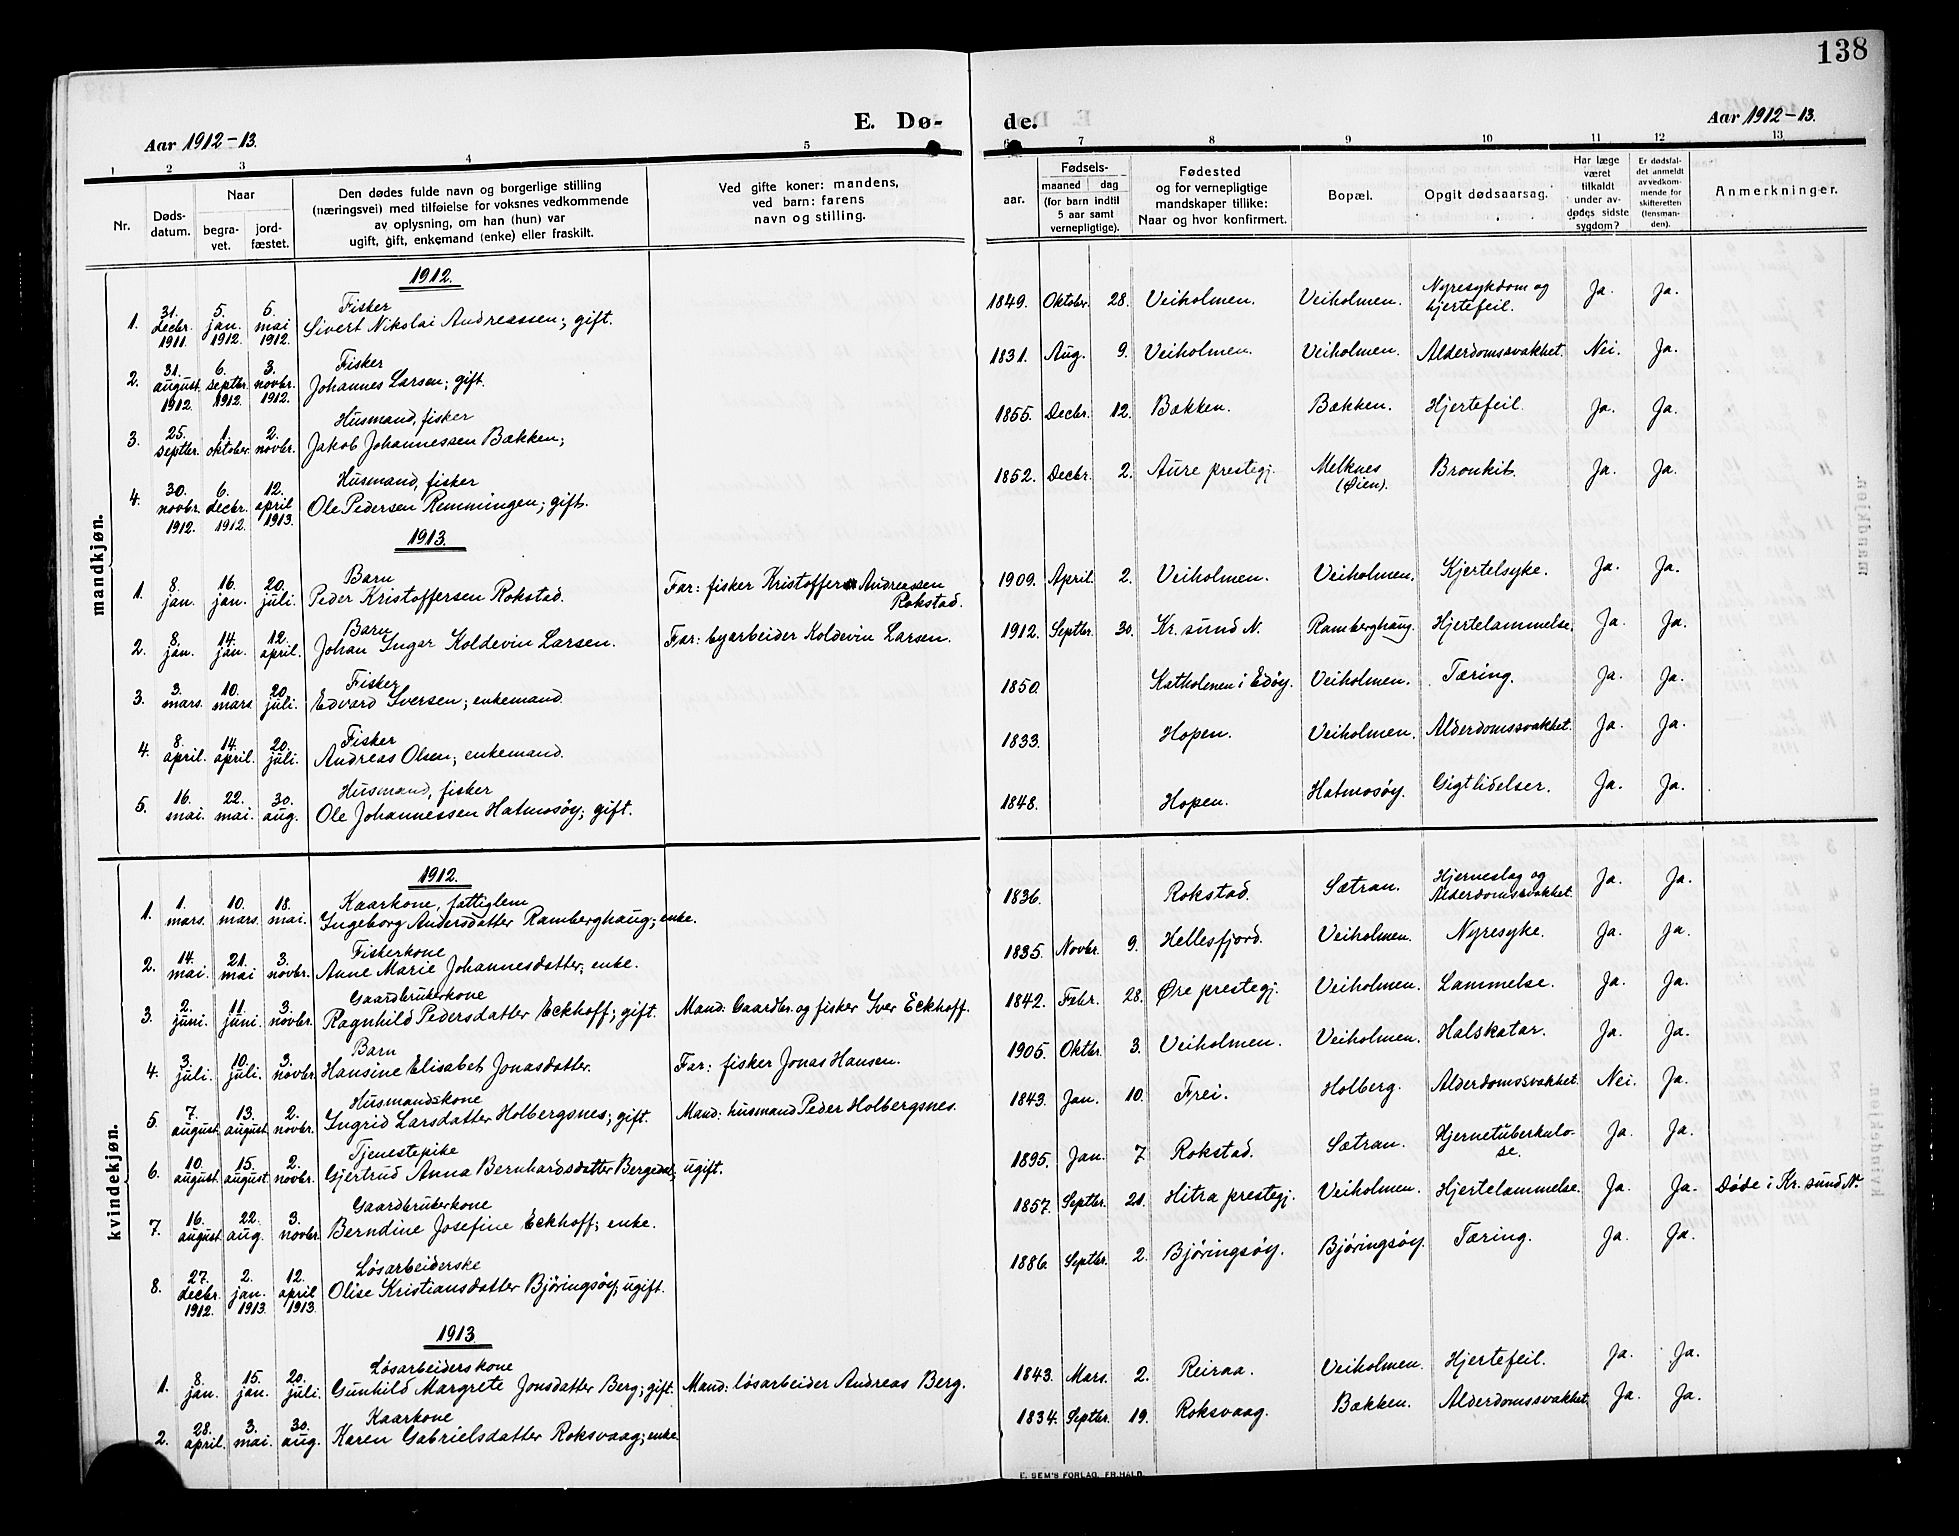 138
Aar 1912-13. E. Dø- de. Aar 1912-13.
1 2 3 4 5 6 7 8 9 10 11 12 13
Nr. Døds-datum. Naar begra-vet. jord-fæstet. Den dødes fulde navn og borgerlige stilling (næringsvei) med tilføielse for voksnes vedkommende av oplysning, om han (hun) var ugift, gift, enkemand (enke) eller fraskilt. Ved gifte koner: mandens, ved barn: farens navn og stilling. aar. Fødsels- maaned dag (for barn indtil 5 aar samt vernepligtige). Fødested og for vernepligtige mandskaper tillike: Naar og hvor konfirmert. Bopæl. Opgit dødsaarsag. Har læge været tilkaldt under av-dødes sidste sygdom? Er dødsfal-det anmeldt av vedkom-mende for skifteretten (lensman-den). Anmerkninger.
mandkjøn.
1912.
1. 31. decbr. 1911. 5. jan. 1912. 5. mai 1912. Fisker Sivert Nikolai Andreassen; gift. 1849. Oktober. 28. Veiholmen. Veiholmen. Nyresykdom og hjertefeil. Ja. Ja.
2. 31. august 1912. 6. septbr. 1912. 3. novbr. 1912. Fisker Johannes Larsen; gift. 1831. Aug. 9. Veiholmen. Veiholmen. Alderdomssvakhet. Nei. Ja.
3. 25. septbr. 1. oktober 2. novbr. Husmand, fisker Jakob Johannessen Bækken; 1855. Decbr. 12. Bækken. Bækken. Hjertefeil. Ja. Ja.
4. 30. novbr. 1912. 6. decbr. 1912. 12. april 1913. Husmand, fisker Ole Pedersen Remmingen; gift. 1852. Decbr. 2. Aure prestegj. Melknes (Øien). Bronkit. Ja. Ja.
1913.
1. 8. jan. 16. jan. 20. juli. Barn Peder Kristoffersen Rokstad. Far: fisker Kristoffer Andreassen Rokstad. 1909. April. 2. Veiholmen. Veiholmen. Kjertelsyke. Ja. Ja.
2. 8. jan. 14. jan. 12. april. Barn Johan Ingar Koldevin Larsen. Far: byarbeider Koldevin Larsen. 1912. Septbr. 30. Kr. sund N. Ramberghaug. Hjertelammelse. Ja. Ja.
3. 3. mars. 10. mars 20. juli. Fisker Edvard Iversen; enkemand. 1850. Katholmen i Edøy. Veiholmen. Tæring. Ja. Ja.
4. 8. april. 14. april. 20. juli. Fisker Andreas Olsen; enkemand. 1833. Hopen. Veiholmen. Alderdomssvakhet. Ja. Ja.
5. 16. mai. 22. mai. 30. aug. Husmand, fisker Ole Johannessen Hatmosøy; gift. 1848. Hopen. Hatmosøy. Gigtlidelser. Ja. Ja.
kvindekjøn.
1912.
1. 1. mars. 10. mars. 18. mai. Kaarkone, fattiglem Ingeborg Andersdatter Ramberghaug; enke. 1836. Rokstad. Sætran. Hjerneslag og Alderdomssvakhet. Ja. Ja.
2. 14. mai. 21. mai 3. novbr. Fiskerkone Anne Marie Johannesdatter; enke. 1835. Novbr. 9. Hellesfjord. Veiholmen. Nyresyke. Ja. Ja.
3. 2. juni. 11. juni. 3. novbr. Gaardbrukerkone Ragnhild Pedersdatter Eckhoff; gift. Mand: Gaardbr. og fisker Iver Eckhoff. 1842. Febr. 28. Øre prestegj. Veiholmen. Lammelse. Ja. Ja.
4. 3. juli. 10. juli. 3. novbr. Barn Hansine Elisabet Jonasdatter. Far: fisker Jonas Hansen. 1905. Oktbr. 3. Veiholmen. Veiholmen. Halskatar. Ja. Ja.
5. 7. august 13. august 2. novbr. Husmandskone Ingrid Larsdatter Holbergsnes; gift. Mand: husmand Peder Holbergsnes. 1843. Jan. 10. Frei. Holberg. Alderdomssvakhet. Nei. Ja.
6. 10. august. 15. august 2. novbr. Tjenestepike Gjertrud Anna Bernhardsdatter Bergedal; ugift. 1895. Jan. 7. Rokstad. Sætran. Hjernetuberkulo-se. Ja. Ja.
7. 16. august 22. aug. 3. novbr. Gaardbrukerkone Berndine Josefine Eckhoff; enke. 1857. Septbr. 21. Hitra prestegj. Veiholmen. Hjertelammelse. Ja. Ja. Døde i Kr. sund N.
8. 27. decbr. 1912. 2. jan. 1913. 12. april 1913. Løsarbeiderske Olise Kristiansdatter Bjøringsøy; ugift. 1886. Septbr. 2. Bjøringsøy. Bjøringsøy. Tæring. Ja. Ja.
1913.
1. 8. jan. 15. jan. 20. juli. Løsarbeiderskone Gunhild Margrete Jonsdatter Berg; gift. Mand: løsarbeider Andreas Berg. 1843. Mars. 2. Reiraa. Veiholmen. Hjertefeil. Ja. Ja.
2. 28. april. 3. mai. 30. aug. Kaarkone Karen Gabrielsdatter Roksvaag; enke. 1834. Septbr. 19. Roksvaag. Bækken. Alderdomssvakhet. Ja. Ja.
E. SEM'S FORLAG, FR.HALD.